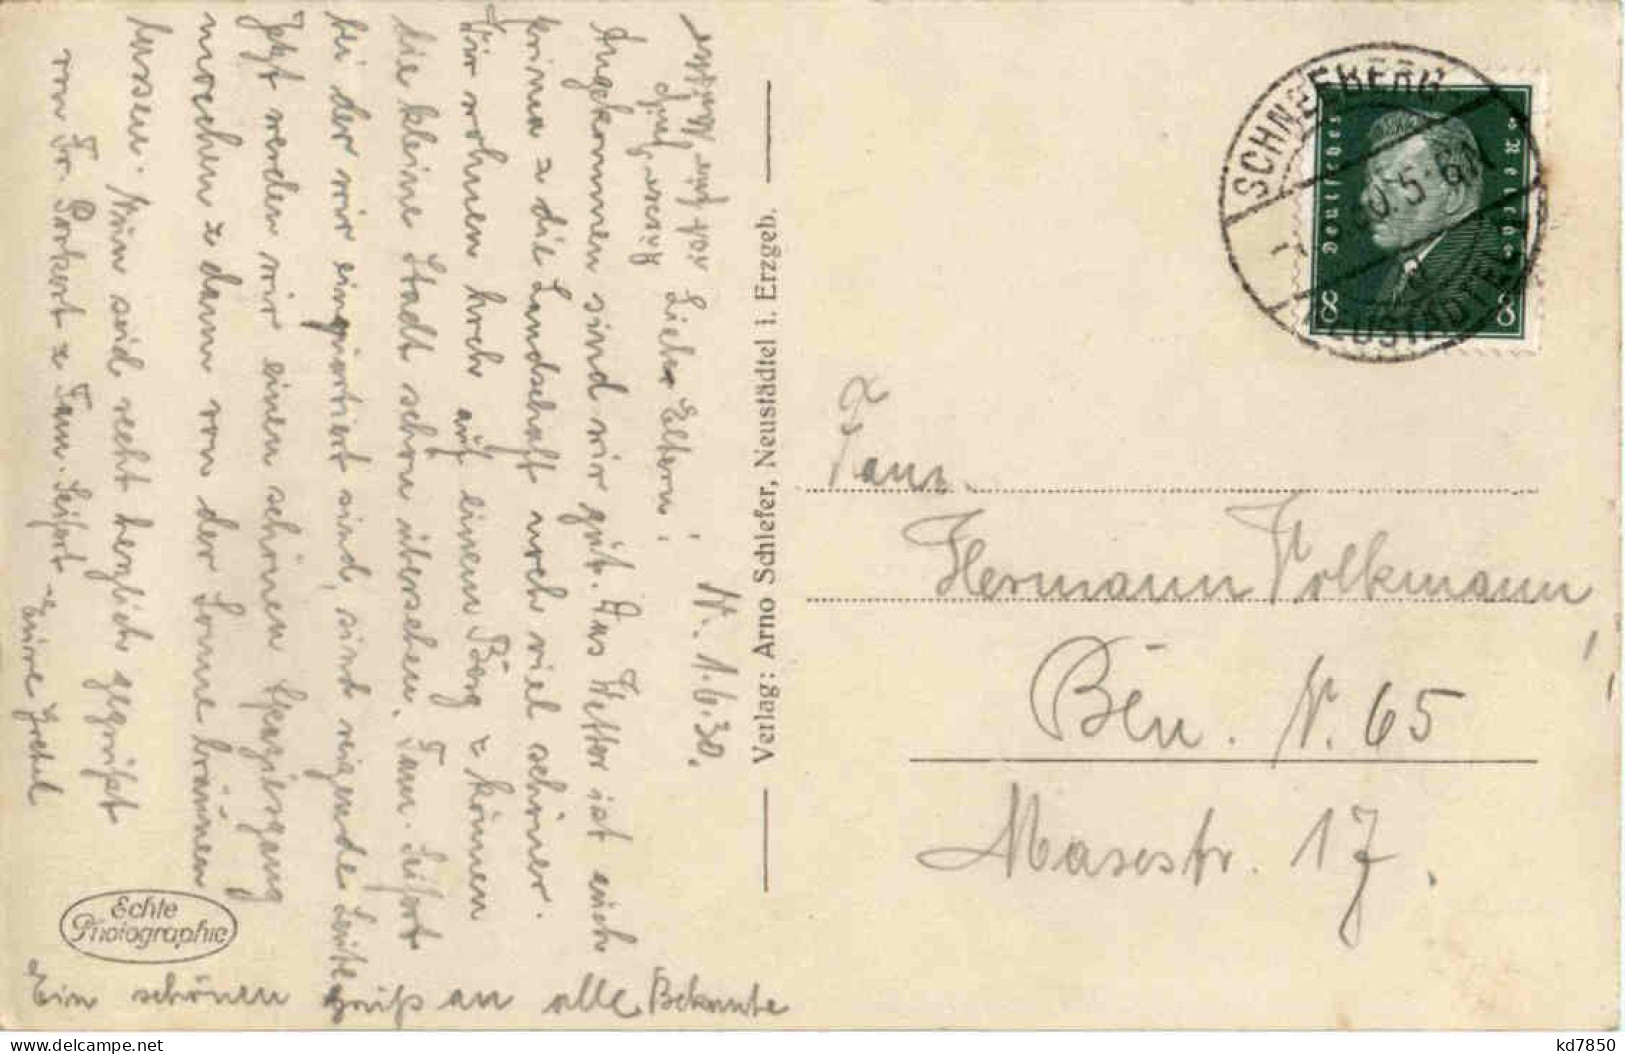 N. 1.6.30.
Liebe Eltern!
Angekommen sind wir gut. Das Wetter ist auch
prima u die Landschaft noch viel schöner.
Wir wohnen hoch auf einem Berg u können
die kleine Stadt schön übersehen. Fam. Seifert
bei der wir einquartiert sind, sind reizende Leute
Jetzt werden wir einen schönen Spaziergang
machen u dann von der Sonne bräunen
lassen. Nun seid recht herzlich gegrüßt
von Fr. Porkert u Fam. Seifert
Eure Gretel
Ein schönen Gruß an alle Bekannte
Verlag: Arno Schiefer, Neustädtel i. Erzgeb.
Echte
Photographie
SCHNEEBERG
NEUSTÄDTEL
Deutsches
Reich
8 8
Fam.
Hermann Volkmann
Bln. N. 65
Maxstr. 17.
kd7850